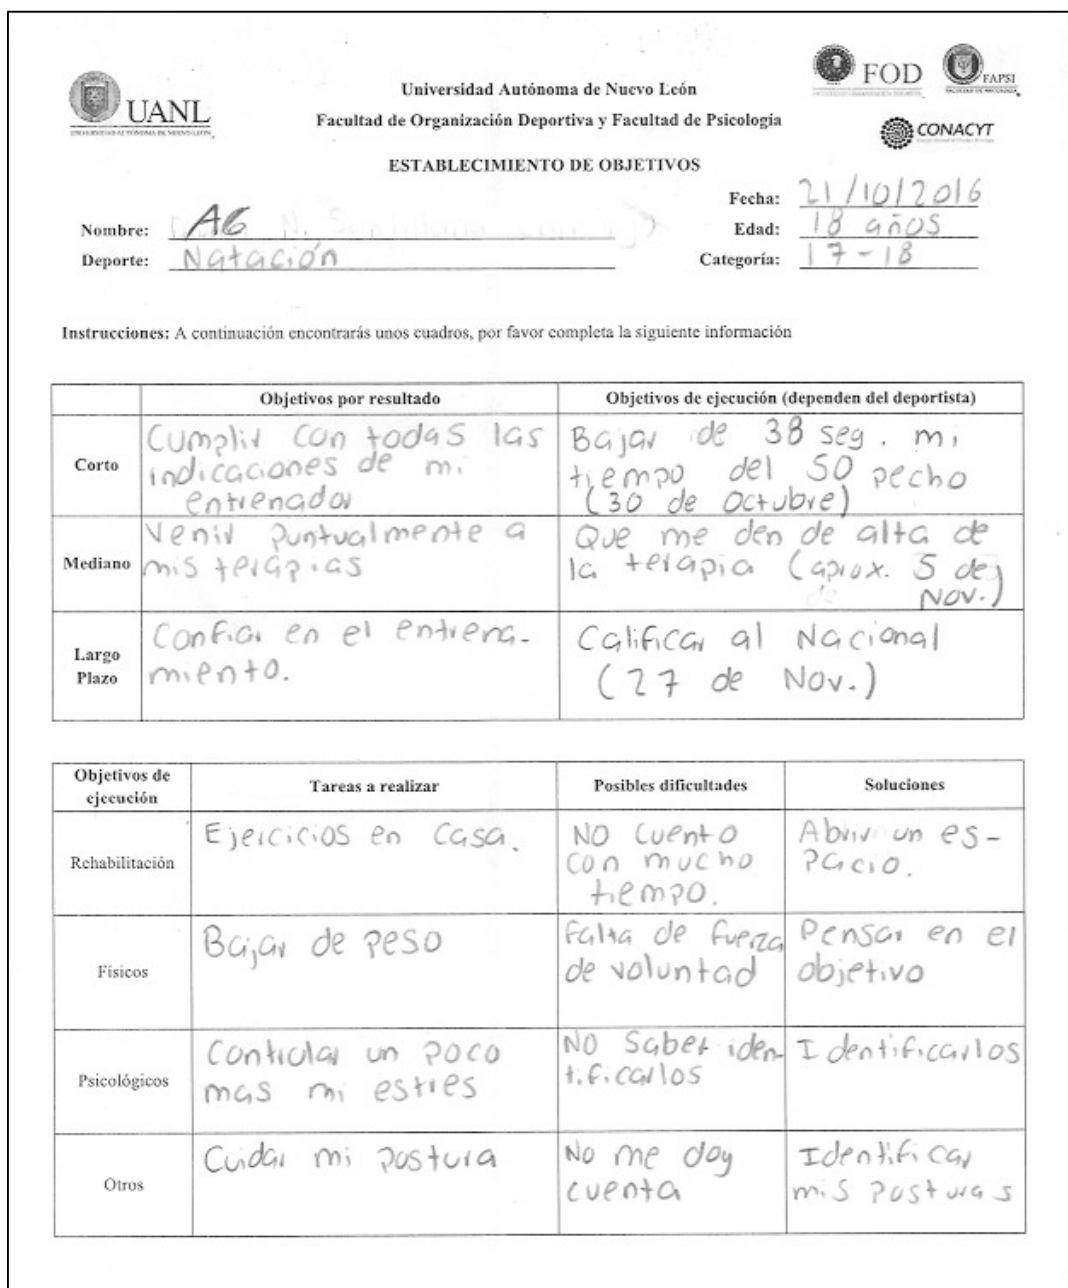 UANL
UNIVERSIDAD AUTÓNOMA DE NUEVO LEÓN
Universidad Autónoma de Nuevo León
Facultad de Organización Deportiva y Facultad de Psicología
FOD
FAPSI
CONACYT
ESTABLECIMIENTO DE OBJETIVOS
Fecha: 21/10/2016
Nombre: AG
Edad: 18 años
Deporte: Natación
Categoría: 17-18
Instrucciones: A continuación encontrarás unos cuadros, por favor completa la siguiente información
Objetivos por resultado
Objetivos de ejecución (dependen del deportista)
Corto
Cumplir con todas las
indicaciones de mi
entrenador
Bajar de 38 seg. mi
tiempo del 50 pecho
(30 de Octubre)
Mediano
Venir puntualmente a
mis terapias
Que me den de alta de
la terapia (aprox. 5 de
Nov.)
Largo
Plazo
Confiar en el entrena-
miento.
Calificar al Nacional
(27 de Nov.)
Objetivos de
ejecución
Tareas a realizar
Posibles dificultades
Soluciones
Rehabilitación
Ejercicios en casa.
No cuento
con mucho
tiempo.
Abrir un es-
pacio.
Físicos
Bajar de peso
Falta de fuerza
de voluntad
Pensar en el
objetivo
Psicológicos
Controlar un poco
mas mi estres
No saber iden-
tificarlos
Identificarlos
Otros
Cuidar mi postura
No me doy
cuenta
Identificar
mis posturas